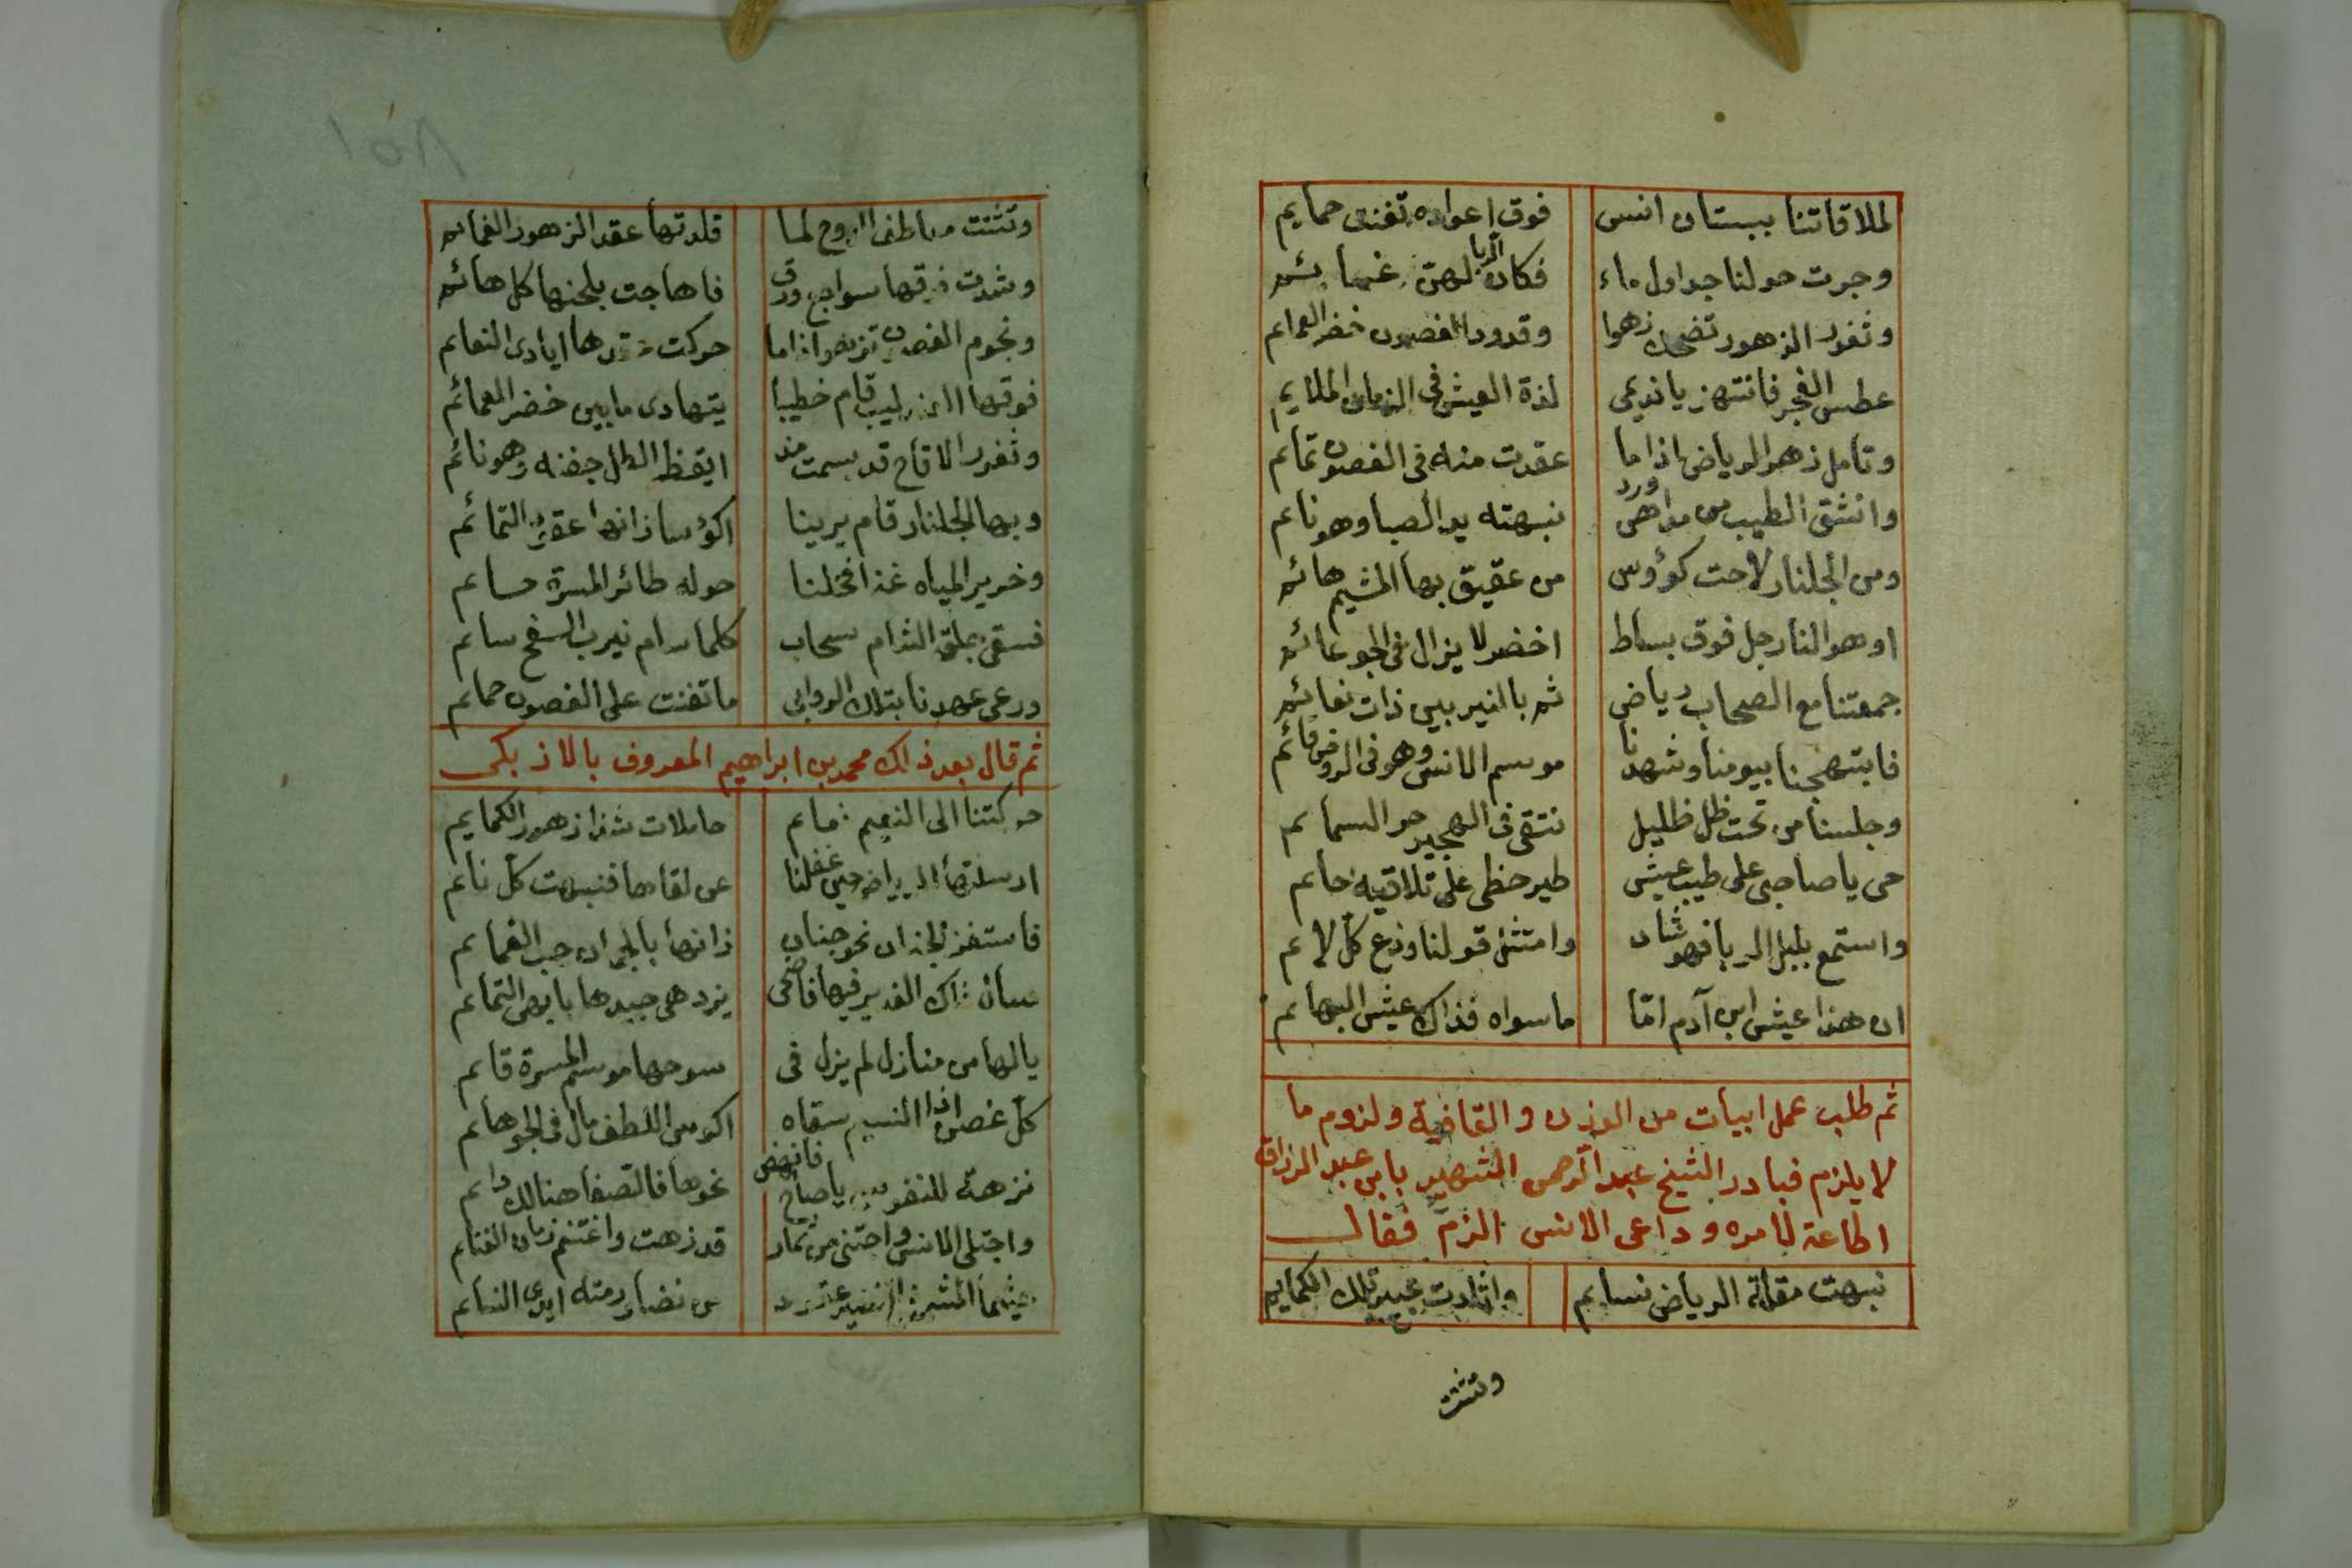 لملاقاتنا ببستان انس فوق اعواده تغنى حمايم
وجرت حولنا جداول ماء فكان الربا لهن غمائم
وثغور الزهور تضحك زهوا وقدود الغصون خضر العمائم
عطس الفجر فانتهز يا نديمى لذة العيش فى الزمان الملايم
وتامل زهر الرياض اذا ما عقدت منه فى الغصون تمائم
وانشق الطيب من مداهن ورد نبهته يد الصبا وهو نائم
ومن الجلنار لاحت كؤوس من عقيق بها المشيم هائم
او هو النار جل فوق بساط اخضر لا يزال فى الجو عائم
جمعتنا مع الصحاب رياض ثم بالنيربين ذات نعائم
فابتهجنا بيومنا وشهدنا موسم الانس وهو فى الروض قائم
وجلسنا من تحت ظل ظليل نتقى فى الهجير حر السمائم
حى يا صاحبى على طيب عيش طير حظى على تلاقيه حائم
واستمع بلبل الربا فهو شاد وامتثل قولنا ودع كل لائم
ان هذا عيش ابن آدم امّا ما سواه فذاك عيش البهائم
ثم طلب عمل ابيات من الوزن والقافية ولزوم ما
لا يلزم فبادر الشيخ عبد الرحمن الشهير بابن عبد الرزاق
اطاعة لامره وداعى الانس الزم فقال
نبهت مقلة الرياض نسايم واثارت عبير تلك الكمايم
وتثنت
وتثنت معاطف الدوح لما قلدتها عقد الزهور الغمائم
وشدت فوقها سواجع ورق فاهاجت بلحنها كل هائم
ونجوم الغصون تزهر اذا ما حركت قدها ايادى النعائم
فوقها العندليب قام خطيبا يتهادى ما بين خضر العمائم
وثغور الاقاح قد بسمت مذ ايقظ الطل جفنه وهو نائم
وبها الجلنار قام يرينا اكؤسا زانها عقود التمائم
وخرير المياه غذا فخلنا حوله طائر المسرة حائم
فسقى جلق الشام سحاب كلما سام نيرب السفح سائم
ورعى عهدنا بتلك الروابى ما تغنت على الغصون حمائم
ثم قال بعد ذلك محمد بن ابراهيم المعروف بالاز بكى
حركتنا الى النعيم نسائم حاملات شذا زهور الكمايم
ارسلتها الرياض حين غفلنا عن لقاها فنبهت كل نائم
فاستفز الجنان نحو جنان زانها بالجمان حب الغمائم
شأن ذاك الغدير فيها فاضحى يزدهى جيدها بابهى التمائم
يالها من منازل لم يزل فى سوحها موسم المسرة قائم
كل غصن اذا النسيم سقاه اكوس اللطف مال فى الجو هائم
نزهة للنفوس يا صاح فانهض نحوها فالصفا هنالك دائم
واجتلى الانس واجتنى من ثمار قد زهت واغتنم زمان الغنائم
حيثما المشمش النضير من نضار رمته ايدى النسائم